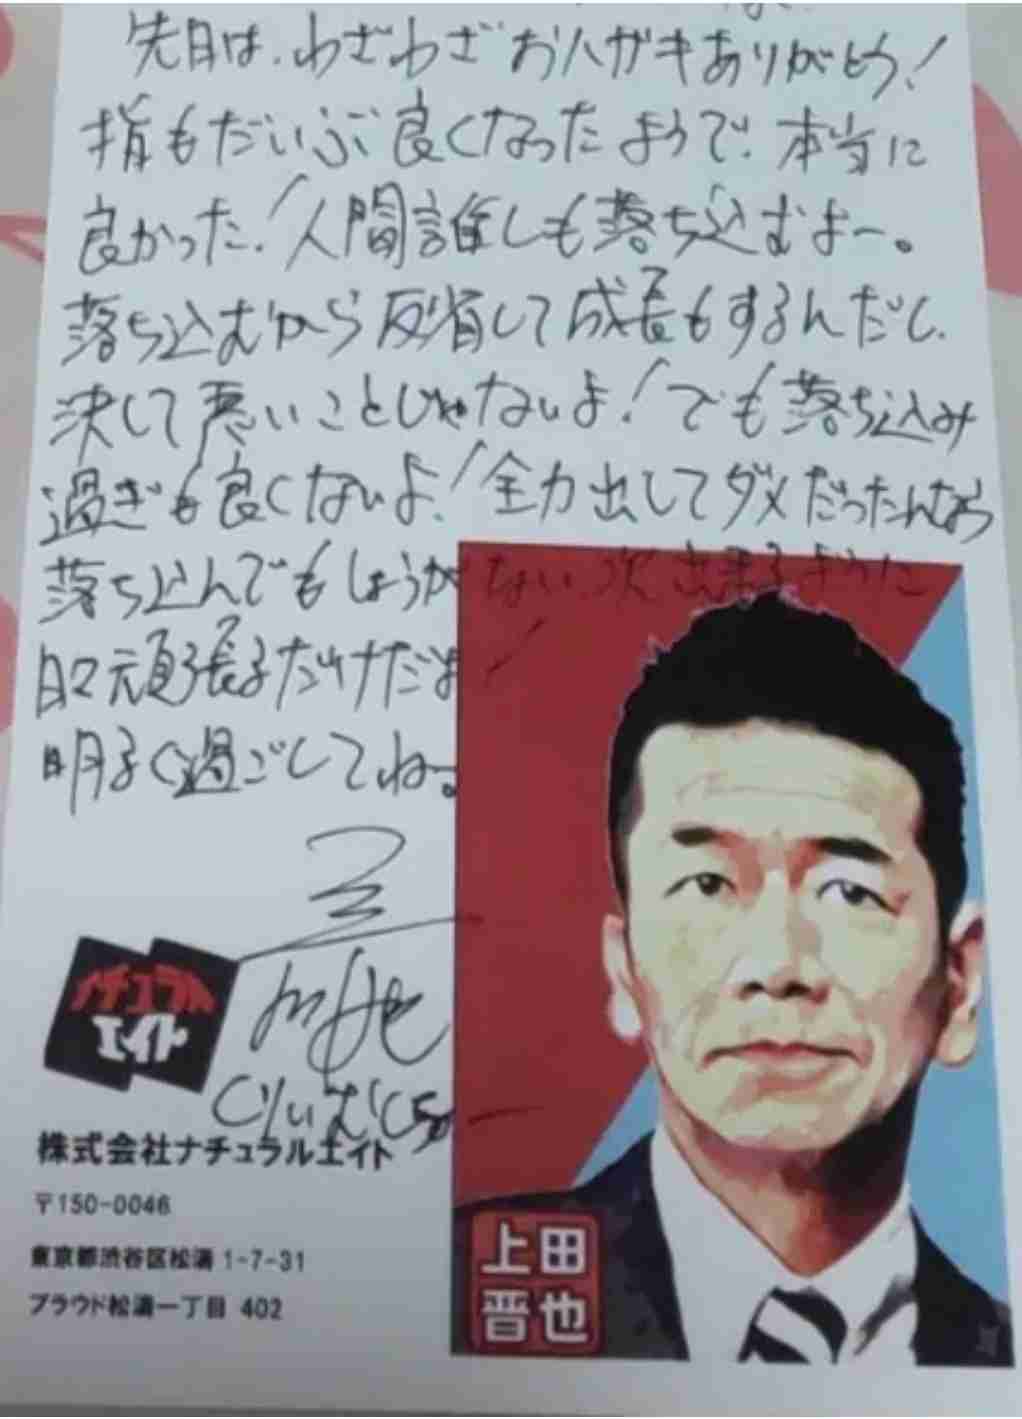 先日は、わざわざおハガキありがとう!
指もだいぶ良くなったようで、本当に
良かった!人間誰しも落ち込むよー。
落ち込むから反省して成長もするんだし、
決して悪いことじゃないよ!でも落ち込み
過ぎも良くないよ!全力出してダメだったんなら
落ち込んでもしょうがない、次出来るように
日々頑張るだけだよ!
明るく過ごしてね。
ナチュラル
エイト
くりぃむしちゅー
株式会社ナチュラルエイト
〒150-0046
東京都渋谷区松濤 1-7-31
プラウド松濤一丁目 402
上田
晋也